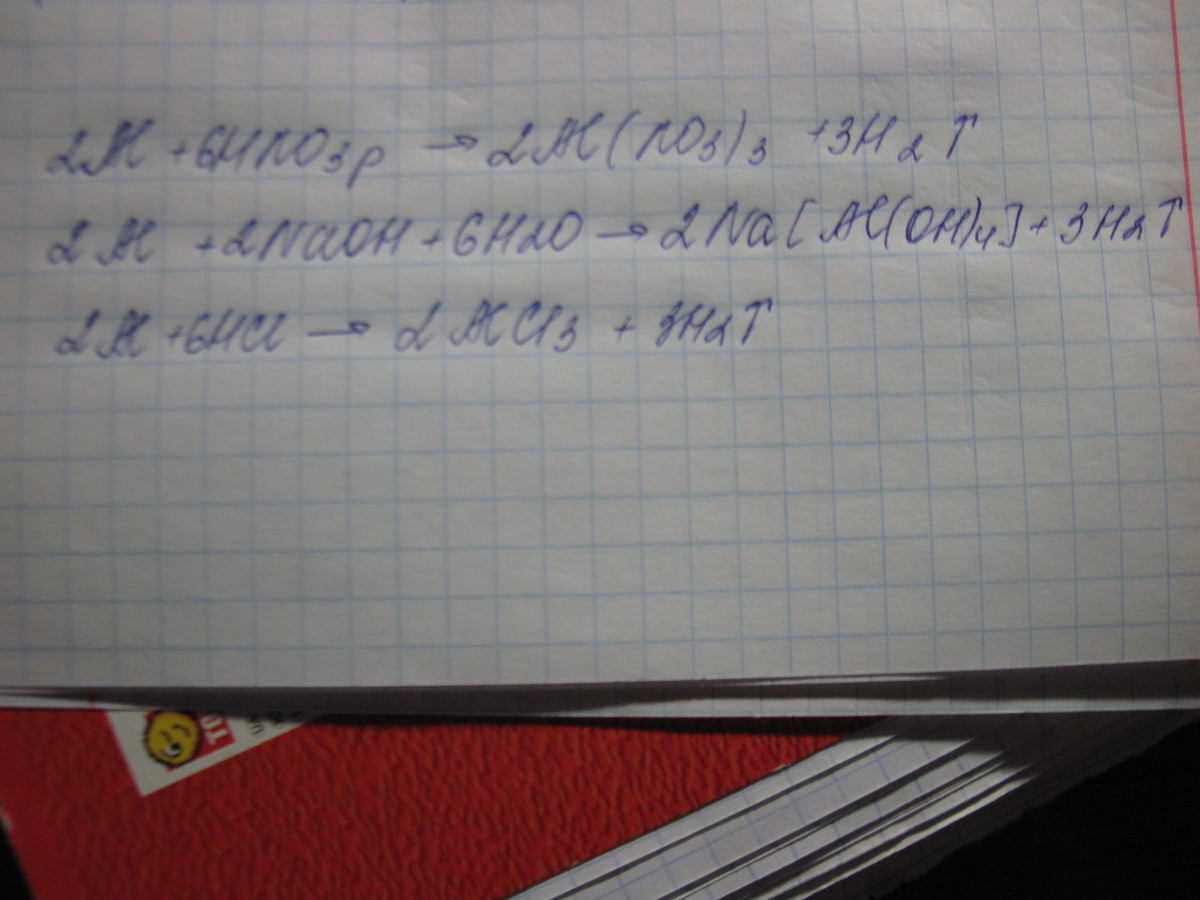 2Al + 6HNO3р → 2Al(NO3)3 + 3H2↑
2Al + 2NaOH + 6H2O → 2Na[Al(OH)4] + 3H2↑
2Al + 6HCl → 2AlCl3 + 3H2↑